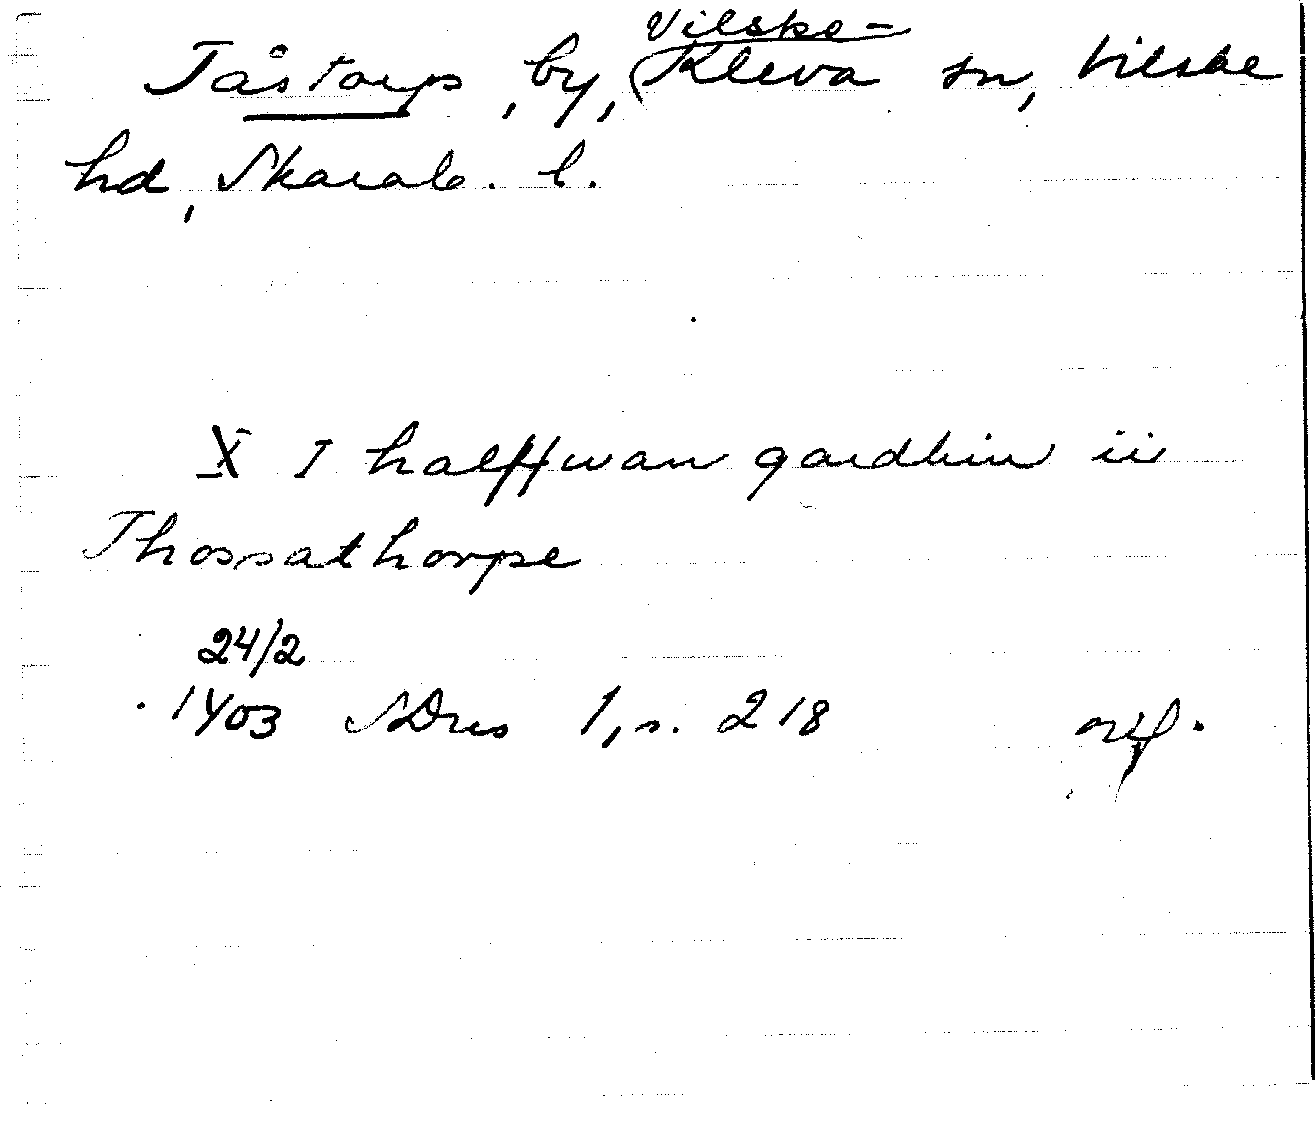 Vilske-
Tåstorp, by, Kleva sn, Vilske
hd, Skarab. l.
X I halffwan gardhin ii
Thossathorpe
24/2
1403 SDns 1, s. 218 or.